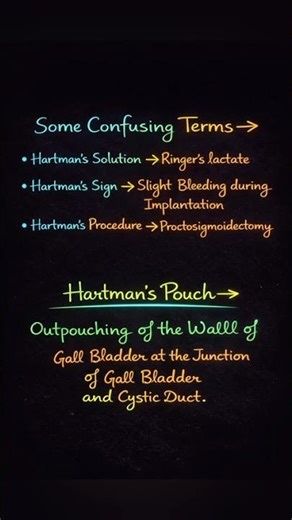 Some Confusing Terms →
• Hartman's Solution → Ringer's lactate
• Hartman's Sign → Slight Bleeding during
Implantation
• Hartman's Procedure → Proctosigmoidectomy
Hartman's Pouch →
Outpouching of the Walll of
Gall Bladder at the Junction
of Gall Bladder
and Cystic Duct.